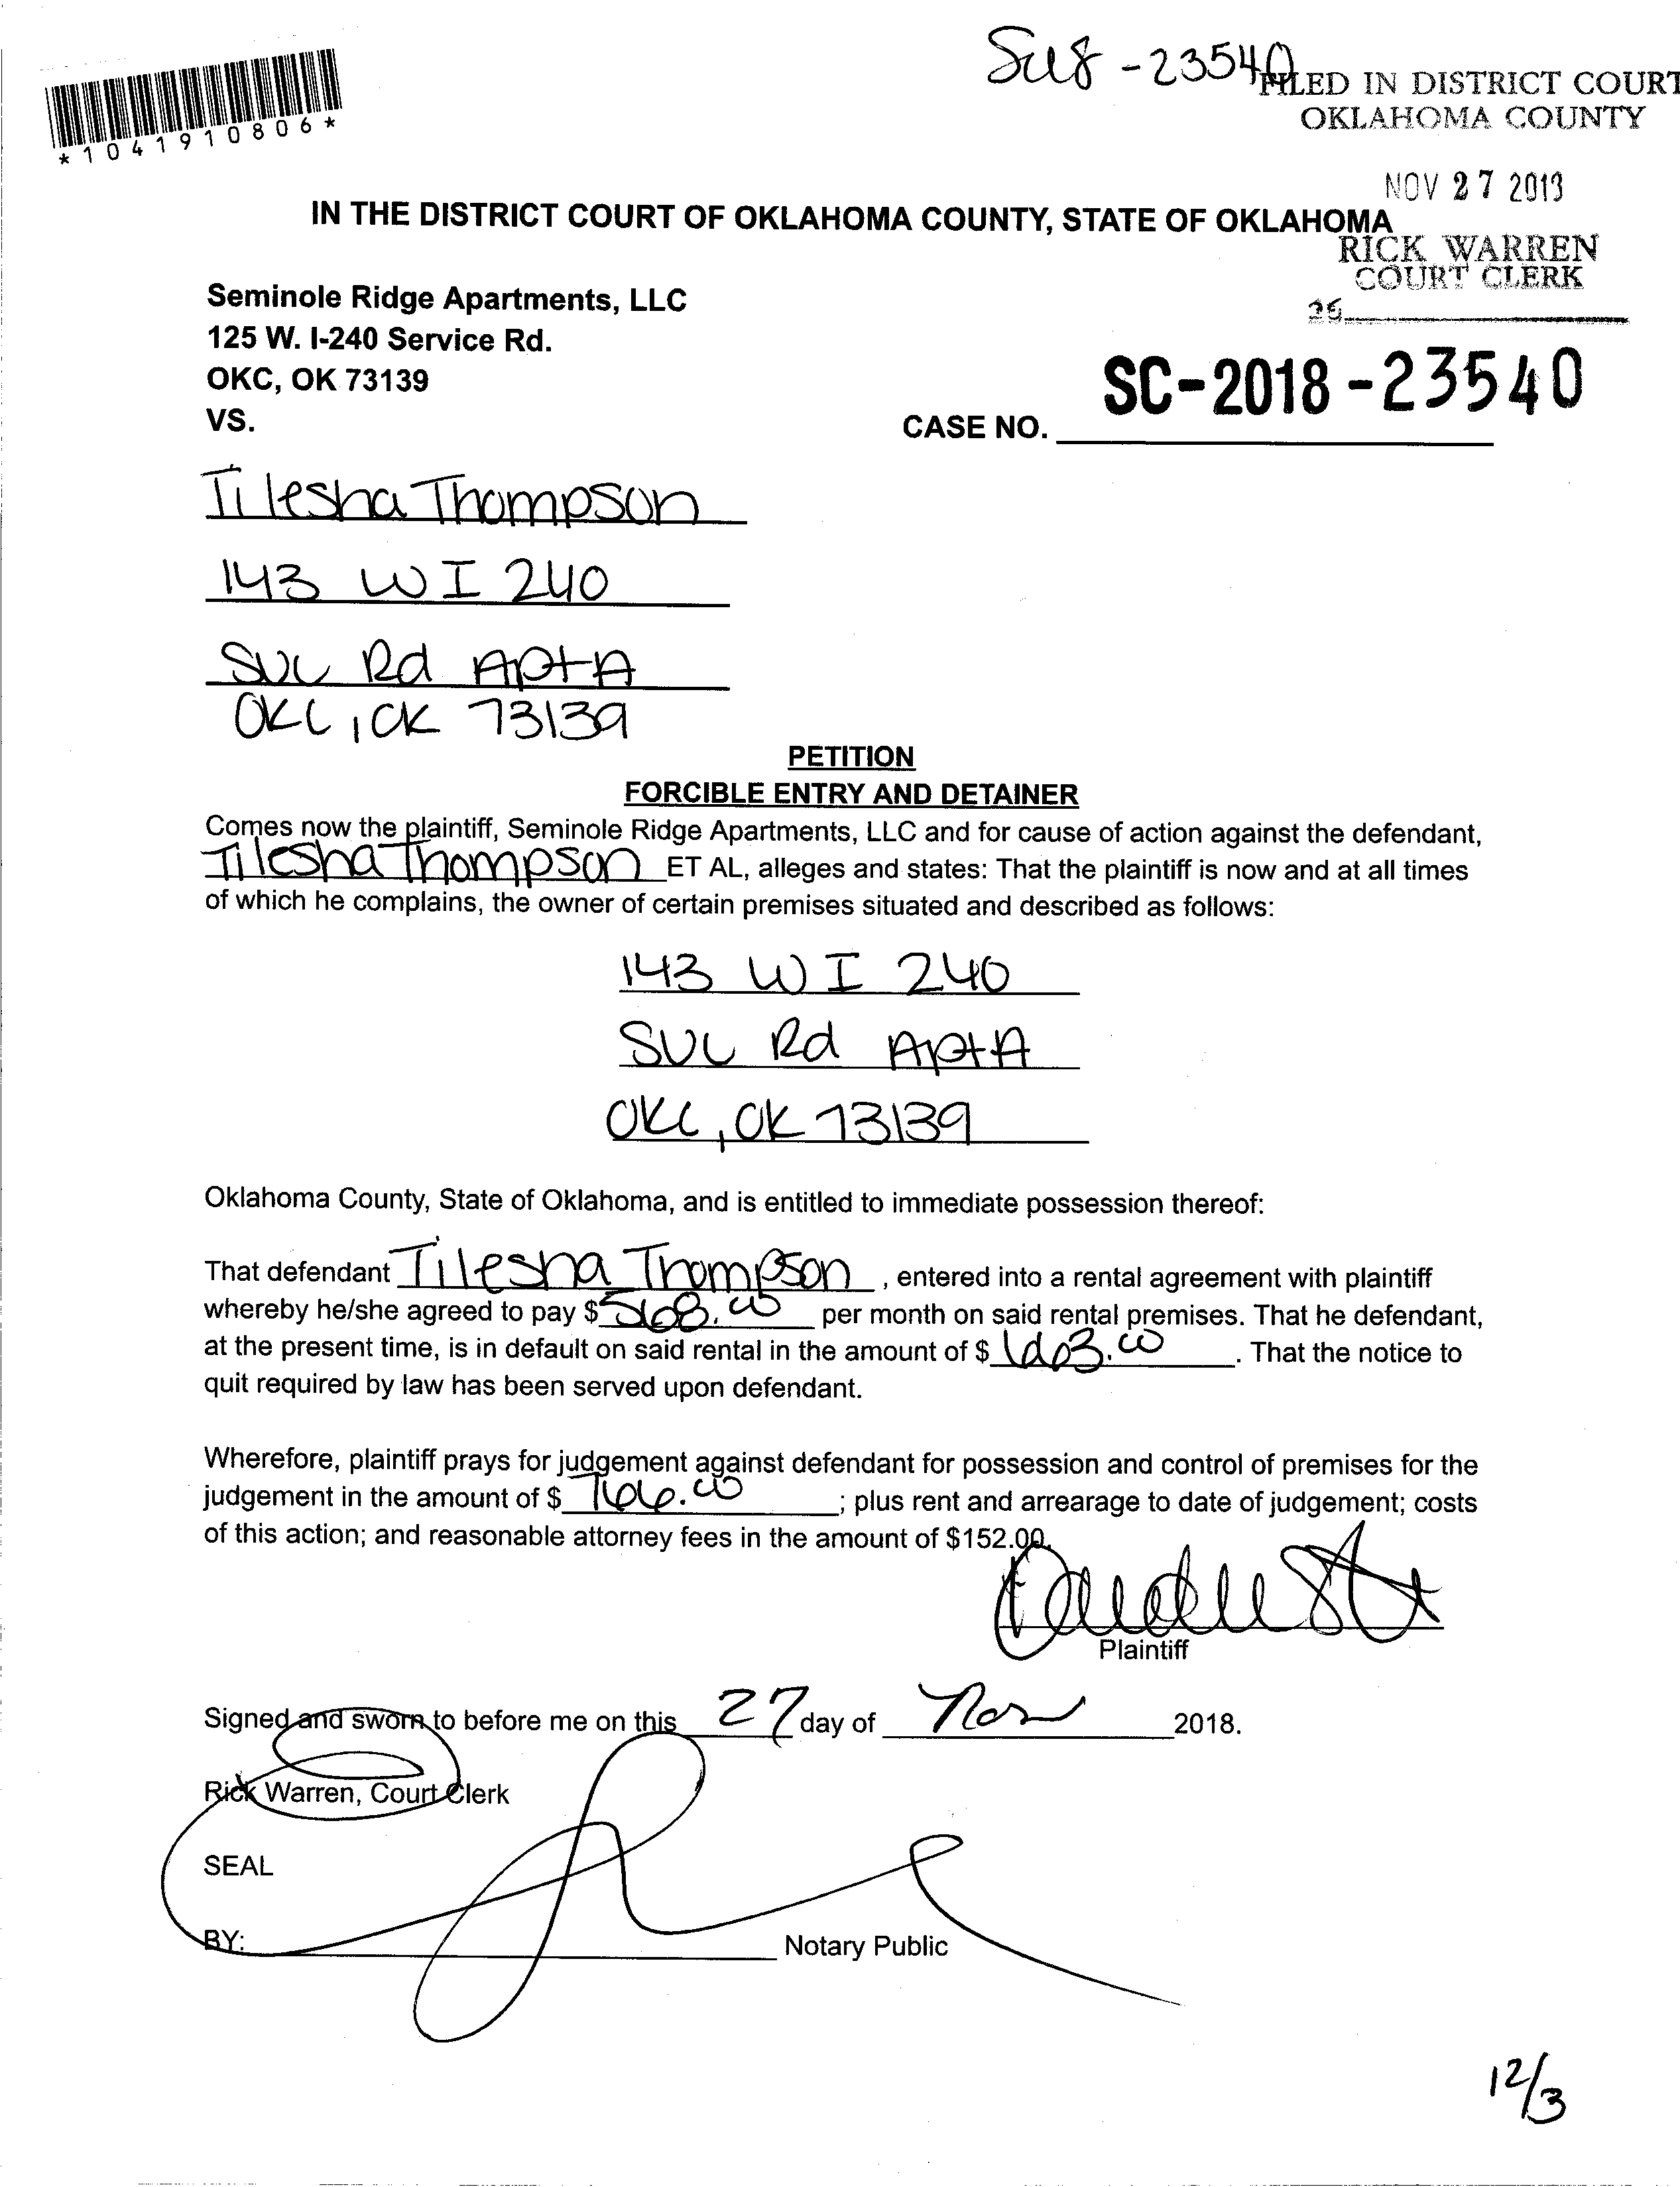 SC18-23540
FILED IN DISTRICT COURT
OKLAHOMA COUNTY
*1041910806*
NOV 27 2018
IN THE DISTRICT COURT OF OKLAHOMA COUNTY, STATE OF OKLAHOMA
RICK WARREN
COURT CLERK
Seminole Ridge Apartments, LLC
125 W. I-240 Service Rd.
OKC, OK 73139
VS.
SC-2018-23540
CASE NO.
Tilesha Thompson
143 W I 240
SVC Rd Apt A
OKC, OK 73139
PETITION
FORCIBLE ENTRY AND DETAINER
Comes now the plaintiff, Seminole Ridge Apartments, LLC and for cause of action against the defendant,
Tilesha Thompson ET AL, alleges and states: That the plaintiff is now and at all times
of which he complains, the owner of certain premises situated and described as follows:
143 W I 240
SVC Rd Apt A
OKC, OK 73139
Oklahoma County, State of Oklahoma, and is entitled to immediate possession thereof:
That defendant Tilesha Thompson, entered into a rental agreement with plaintiff
whereby he/she agreed to pay $568.00 per month on said rental premises. That he defendant,
at the present time, is in default on said rental in the amount of $. That the notice to
quit required by law has been served upon defendant.
Wherefore, plaintiff prays for judgement against defendant for possession and control of premises for the
judgement in the amount of $766.00; plus rent and arrearage to date of judgement; costs
of this action; and reasonable attorney fees in the amount of $152.00.
Plaintiff
Signed and sworn to before me on this 27 day of Nov 2018.
Rick Warren, Court Clerk
SEAL
BY: Notary Public
12/3